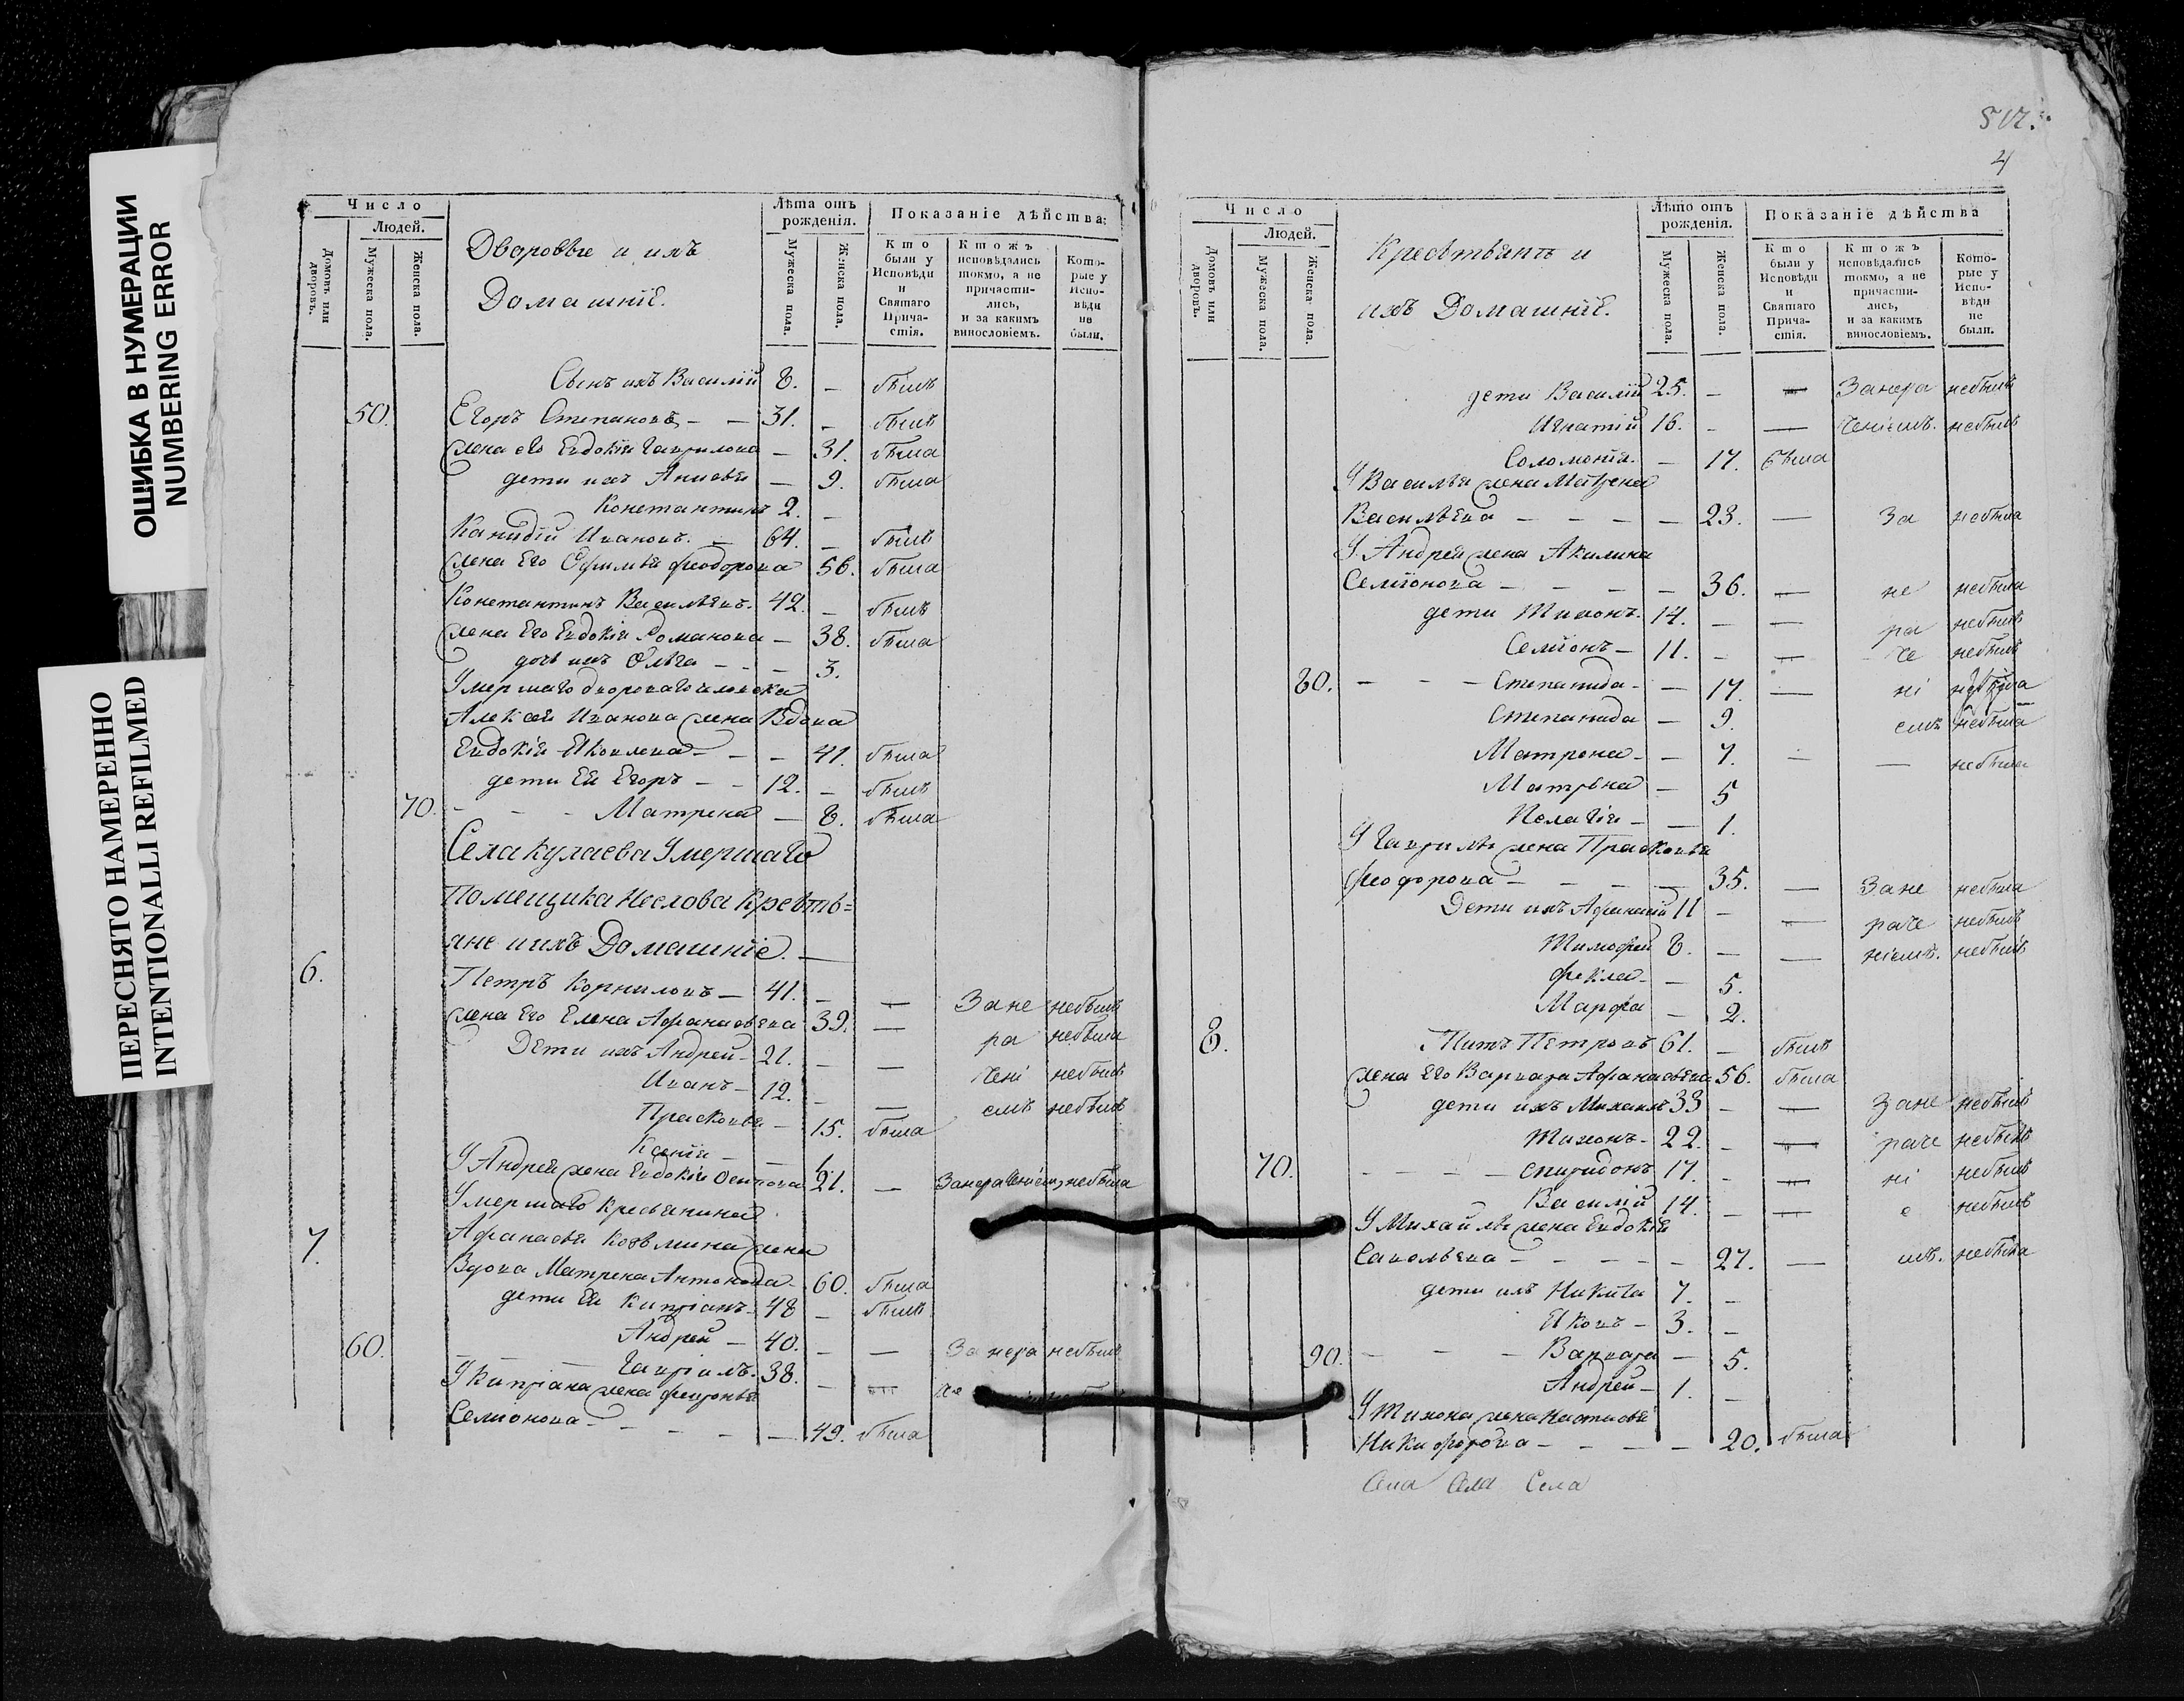 ОШИБКА В НУМЕРАЦИИ
NUMBERING ERROR
ПЕРЕСНЯТО НАМЕРЕННО
INTENTIONALLI REFILMED
Число
Людей.
Домовъ или дворовъ.
Мужеска пола.
Женска пола.
Дворовые и ихъ
Домашніе.
Лѣта отъ рожденія.
Мужеска пола.
Женска пола.
Показаніе дѣйства:
Кто были у Исповѣди и Святаго Причастія.
Ктожъ исповѣдались токмо, а не причастились, и за какимъ винословіемъ.
Которые у Исповѣди не были.
Сынъ ихъ Василій 8. – былъ
50. Егоръ Степановъ – – 31. – былъ
Жена его Евдокія Гаврилова – 31. была
дети ихъ Анисья – 9. была
Константинъ 2. –
Иванов. – 64. – былъ
Жена Его Ефимья Феодорова 56. была
Константинъ Васильевъ. 42. – былъ
Жена Его Евдокія Романова – 38. была
дочь ихъ Ольга – – – 3.
Умершаго двороваго человека
Алексея Иванова жена Вдова
Евдокія Яковлева – – – 41. была
дети Ея Егоръ – – 12. – былъ
70. – – – Матрена – 8. была
Села Кулаева Умершаго
Помещика Неелова Кресть=
яне и ихъ Домашніе. –
6. Петръ Корниловъ – 41. – — Зане небылъ
Жена Его Елена Афанасьева 39. — ра небыла
Дети ихъ Андрей – 21. – — чені небылъ
Иванъ – 12. – — емъ небылъ
Прасковья – 15. была
Ксенія – – 6.
У Андрея жена Евдокія Осипова 21. — Занераченіем, небыла
Умершаго Крестьянина
7. Афанасья Козьмина жена
Вдова Матрена Антонова – 60. была
дети Ея Кипріанъ. 48 – былъ
Андрей – 40. – — Занера небылъ
60. – – — Гавріилъ. 38. – — че
У Кипріана жена Февронья
Семіонова – – – – – 49. была
512.
4
Число
Людей.
Домовъ или дворовъ.
Мужеска пола.
Женска пола.
Крестьянъ и
ихъ Домашніе.
Лѣто отъ рожденія.
Мужеска пола.
Женска пола.
Показаніе дѣйства
Кто были у Исповѣди и Святаго Причастія.
Ктожъ исповѣдались токмо, а не причастились, и за какимъ винословіемъ.
Которые у Исповѣди не были.
дети Василій 25. – — Занера небылъ
Игнатій 16. – — ченіемъ. небылъ
Соломонія. – 17. была
У Василья жена Матрена
Васильева – – – – 23. — За небыла
У Андрея жена Акилина
Семіонова – – – – 36. — не небыла
дети Тихонъ. 14. – — ра небылъ
Семіонъ – 11. – — че небылъ
80. – – – Степанида – – 17. — ні небыла
Степанида – 9. емъ небыла
Матрона – – 7. – — небыла
Матрена – 5
Пелагія – – 1.
У Гаврилы жена Прасковья
Феодорова – – – — 35. — Зане небыла
Дети ихъ Афанасій 11 – — раче небылъ
Тимофей 8. – — ніемъ. небылъ
Фекла – – 5.
Марфа – 2.
8. Титъ Петровъ 61. – былъ
Жена Его Варвара Афанасьева 56. была
дети ихъ Михаилъ 33 – — Зане небылъ
Тихонъ – 22. – — раче небылъ
70. – – – – Спиридонъ 17. – — ні небылъ
Василій 14. – — е небылъ
У Михайлы жена Евдокія
Савельева – – – – – 27. — мъ. небыла
дети ихъ Никита 7. –
Яковъ – 3. –
90. – – – Варвара – 5.
Андрей – 1. –
У Тихона жена Настасья
Никифорова – – – – 20. была
Села Села Села